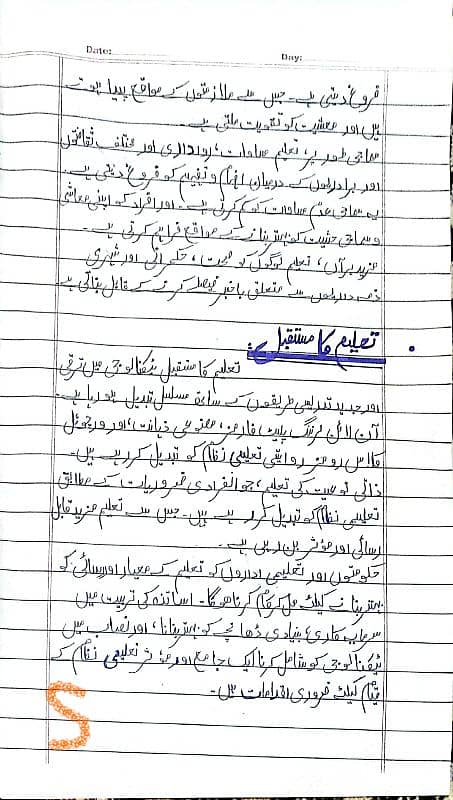 Date:
Day:
فروغ دیتی ہے۔ جس سے ملازمتوں کے مواقع پیدا ہوتے
ہیں اور معیشت کو تقویت ملتی ہے۔
سماجی طور پر، تعلیم مساوات، رواداری اور مختلف ثقافتوں
اور برادریوں کے درمیان افہام و تفہیم کو فروغ دیتی ہے۔
یہ سماجی عدم مساوات کو کم کرتی ہے۔ اور افراد کو اپنی معاشی
و سماجی حیثیت کو بہتر بنانے کے مواقع فراہم کرتی ہے۔
مزید برآں، تعلیم لوگوں کو صحت، حکمرانی اور شہری
ذمہ داریوں سے متعلق باخبر فیصلے کرنے کے قابل بناتی ہے
تعلیم کا مستقبل
تعلیم کا مستقبل ٹیکنالوجی میں ترقی
اور جدید تدریسی طریقوں کے ساتھ مسلسل تبدیل ہو رہا ہے۔
آن لائن لرننگ پلیٹ فارمز، مصنوعی ذہانت، اور ورچوئل
کلاس رومز روایتی تعلیمی نظام کو تبدیل کر رہے ہیں۔
ذاتی نوعیت کی تعلیم، جو انفرادی ضروریات کے مطابق
تعلیمی نظام کو تبدیل کر رہے ہیں۔ جس سے تعلیم مزید قابل
رسائی اور مؤثر بن رہی ہے۔
حکومتوں اور تعلیمی اداروں کو تعلیم کے معیار اور رسائی کو
بہتر بنانے کیلئے مل کر کام کرنا ہوگا۔ اساتذہ کی تربیت میں
سرمایہ کاری، بنیادی ڈھانچے کو بہتر بنانا، اور نصاب میں
ٹیکنالوجی کو شامل کرنا ایک جامع اور مؤثر تعلیمی نظام کے
قیام کیلئے ضروری اقدامات ہیں۔
S